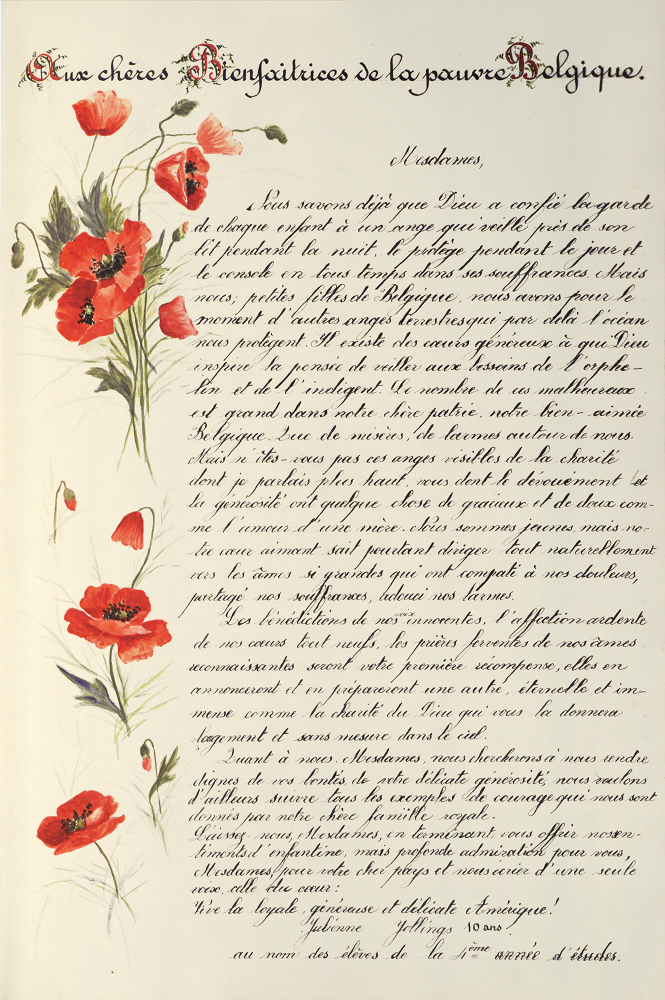 Aux chères Bienfaitrices de la pauvre Belgique.
Mesdames,
Nous savons déjà que Dieu a confié la garde
de chaque enfant à un ange qui veille près de son
lit pendant la nuit, le protège pendant le jour et
le console en tous temps dans ses souffrances. Mais
nous, petites filles de Belgique, nous avons pour le
moment d'autres anges terrestres qui par delà l'océan
nous protègent. Il existe des cœurs généreux à qui Dieu
inspire la pensée de veiller aux besoins de l'orphe-
lin et de l'indigent. Le nombre de ces malheureux
est grand dans notre chère patrie, notre bien-aimée
Belgique. Que de misères, de larmes autour de nous.
Mais n'êtes-vous pas ces anges visibles de la charité
dont je parlais plus haut, vous dont le dévouement et
la générosité ont quelque chose de gracieux et de doux com-
me l'amour d'une mère. Nous sommes jeunes, mais no-
tre cœur aimant sait pourtant diriger tout naturellement
vers les âmes si grandes qui ont compati à nos douleurs,
partagé nos souffrances, adouci nos larmes.
Les bénédictions de nos voix innocentes, l'affection ardente
de nos cœurs tout neufs, les prières ferventes de nos âmes
reconnaissantes seront votre première récompense, elles en
annonceront et en prépareront une autre, éternelle et im-
mense comme la charité du Dieu qui vous la donnera
largement et sans mesure dans le ciel.
Quant à nous, Mesdames, nous chercherons à nous rendre
dignes de vos bontés, de votre délicate générosité, nous voulons
d'ailleurs suivre tous les exemples de courage qui nous sont
donnés par notre chère famille royale.
Laissez-nous, Mesdames, en terminant, vous offrir nos sen-
timents d'enfantine, mais profonde admiration pour vous,
Mesdames, pour votre cher pays et nous crier d'une seule
voix, celle du cœur:
Vive la loyale, généreuse et délicate Amérique!
Julienne Jollings 10 ans
au nom des élèves de la 4ème année d'études.